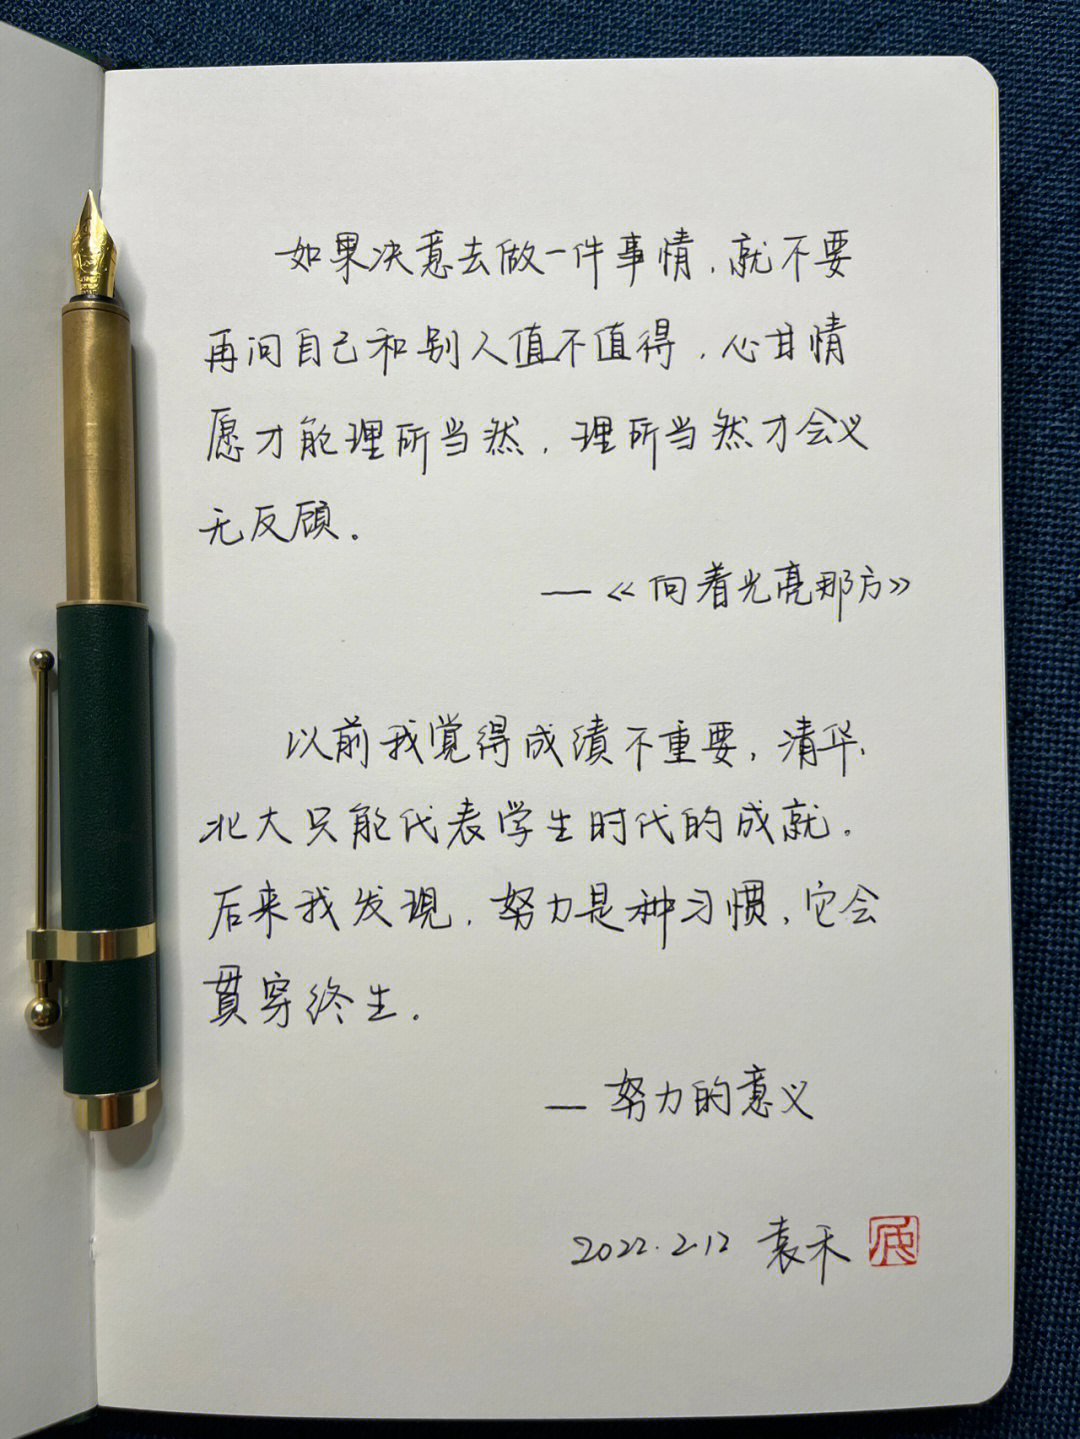 如果决意去做一件事情，就不要
再问自己和别人值不值得，心甘情
愿才能理所当然，理所当然才会义
无反顾。
—《向着光亮那方》
以前我觉得成绩不重要，清华、
北大只能代表学生时代的成就。
后来我发现，努力是种习惯，它会
贯穿终生。
— 努力的意义
2022.2.12 袁禾